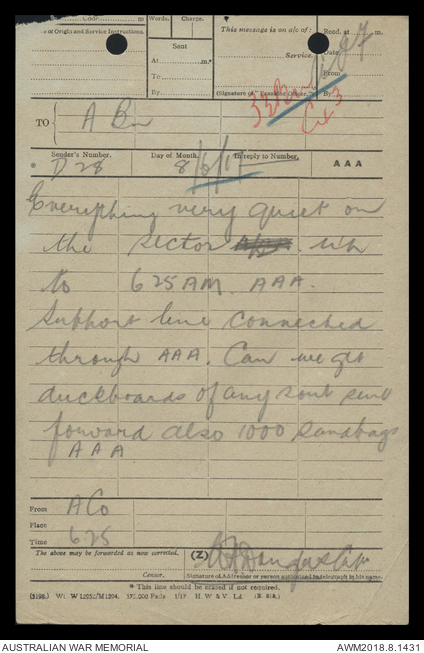 Code m
Words. Charge.
This message is on a/c of:
Recd. at m.
e or Origin and Service Instructions.
Date
Sent
Service.
At m.
From
To
By
(Signature of "Franking Officer.")
By
TO A Bn
Sender's Number.
Day of Month.
In reply to Number.
AAA
* D 28
8/6/17
Everything very quiet on
the sector up
to 625AM. AAA.
Support line connected
through AAA. Can we get
duckboards of any sort sent
forward also 1000 sandbags
AAA
From A Co
Place
Time 625
The above may be forwarded as now corrected.
(Z)
Censor.
Signature of Addressor or person authorised to telegraph in his name.
* This line should be erased if not required.
(3198.) Wt. W 12952/M1294. 375,000 Pads 1/17 H. W & V. Ld. (E. 818.)
AUSTRALIAN WAR MEMORIAL
AWM2018.8.1431